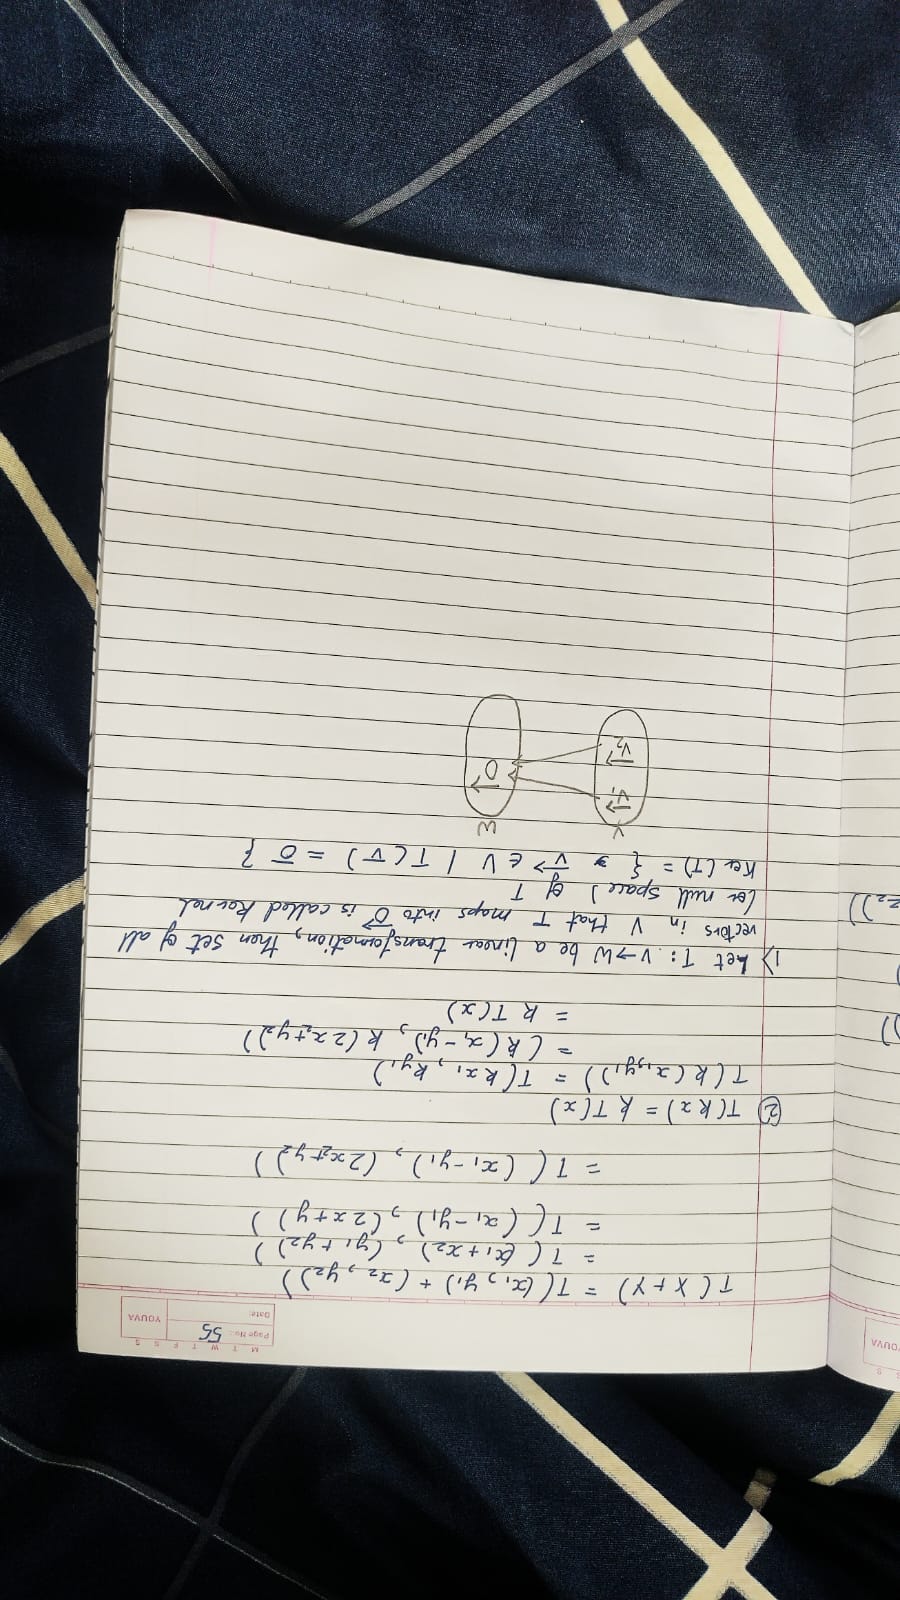 S S
YOUVA
M T W T F S S
Page No.: 55
YOUVA
Date:
T(X+Y) = T((x₁, y₁) + (x₂, y₂))
= T((x₁+x₂), (y₁+y₂))
= T((x₁-y₁), (2x+y))
= T((x₁-y₁), (2x₂+y₂))
② T(kx) = k T(x)
T(k(x₁,y₁)) = T(kx₁, ky₁)
= (k(x₁-y₁), k(2x₂+y₂))
= k T(x)
1) Let T: V→W be a linear transformation, then set of all
vectors in V that T maps into 0⃗ is called kernel
(or null space) of T
Ker(T) = { v⃗ ∈ V | T(v̅) = 0̅ }
V W
v₁⃗ 0⃗
v₂⃗
))
)
z₂))